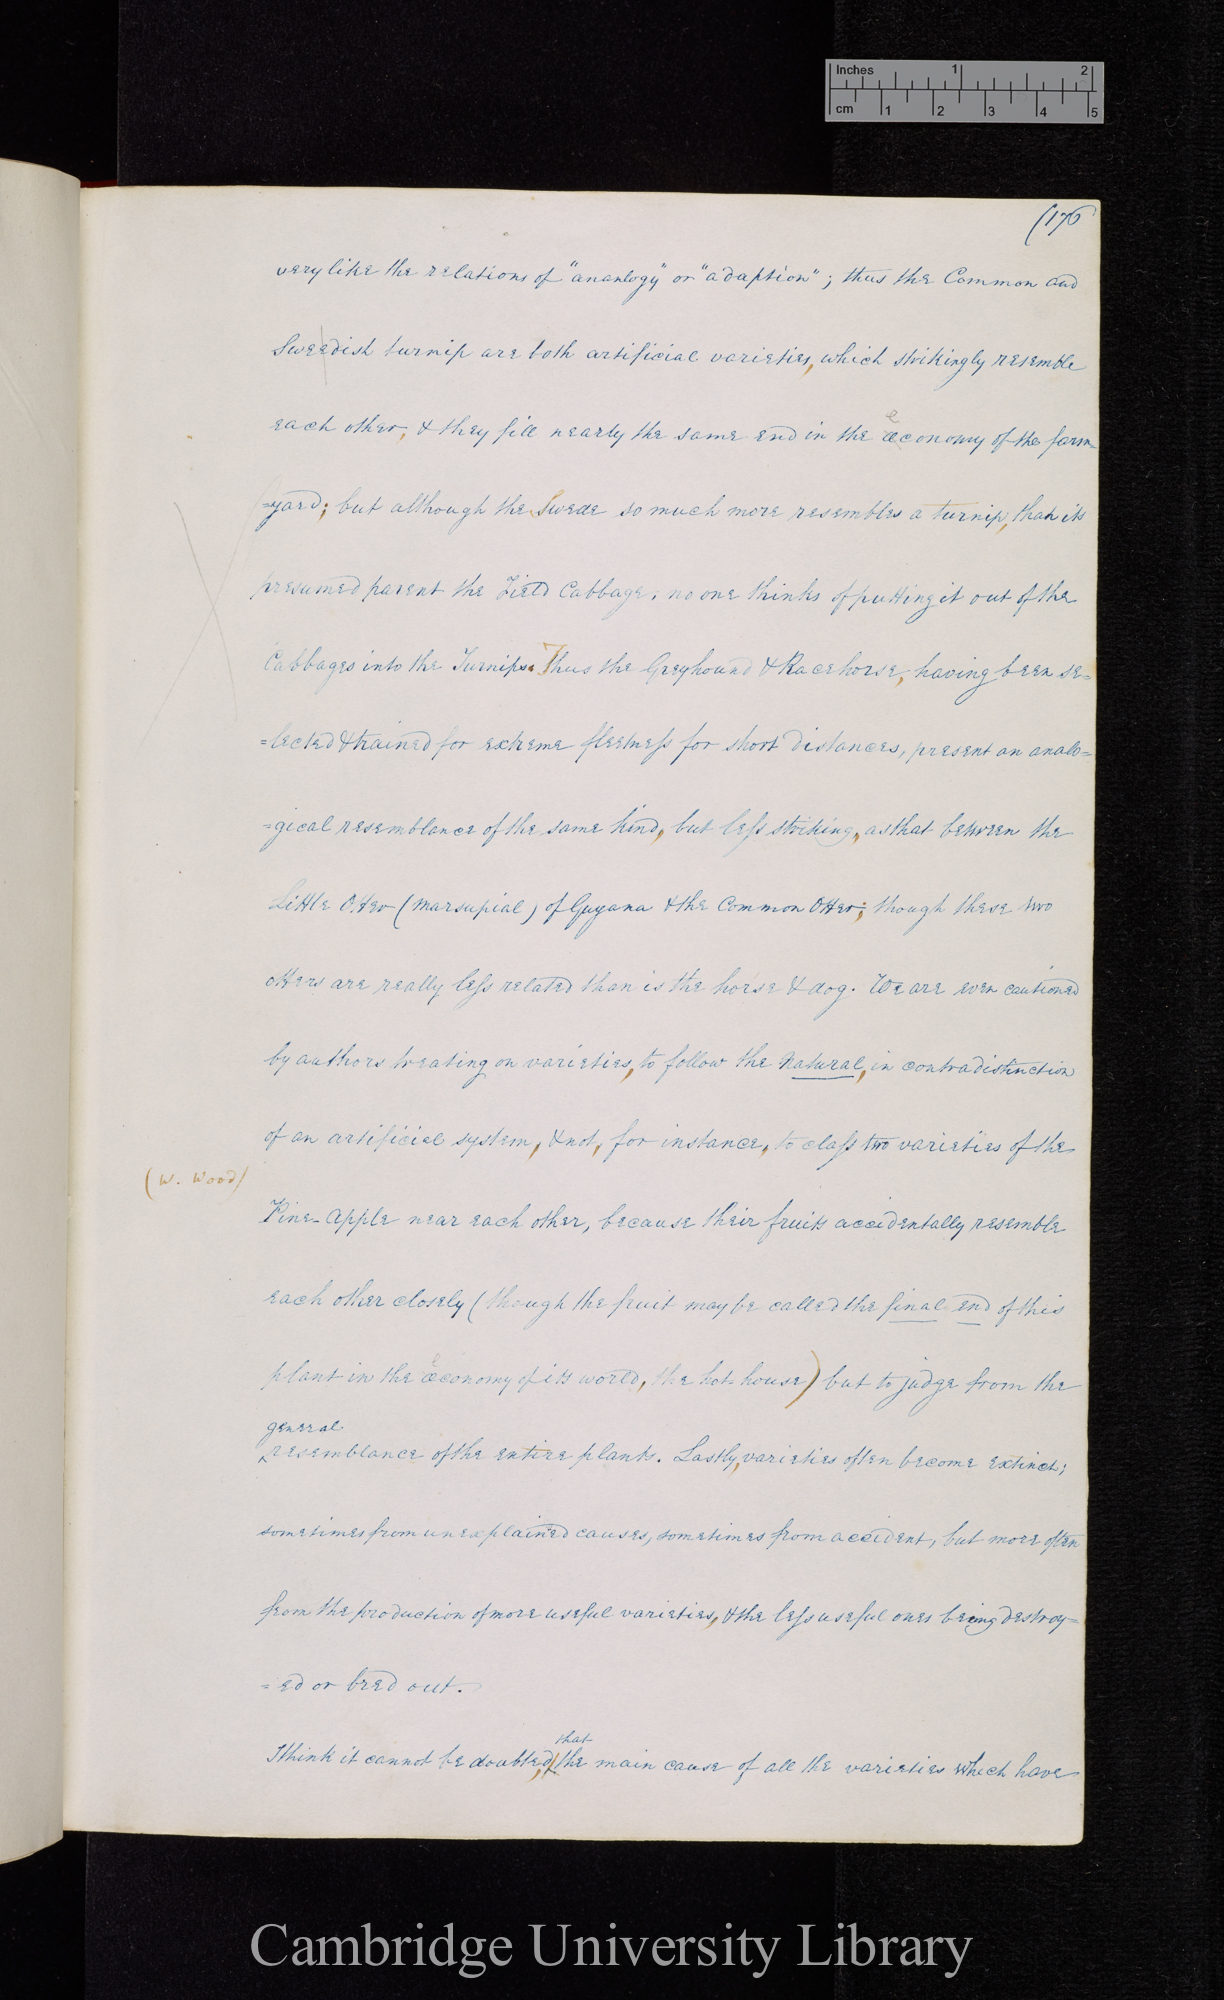 Inches 1 2
cm 1 2 3 4 5
(176
very like the relations of "ananlogy" or "adaption"; thus the Common and
Sweedish turnip are both artificial varieties, which strikingly resemble
each other, & they fill nearly the same end in the œconomy of the farm-
=yard; but although the Swede so much more resembles a turnip, than its
presumed parent the Field Cabbage, no one thinks of putting it out of the
Cabbages into the Turnips. Thus the Greyhound & Racehorse, having been se-
=lected & trained for extreme fleetness for short distances, present an analo=
=gical resemblance of the same kind, but less striking, as that between the
Little Otter (Marsupial) of Guyana & the Common Otter; though these two
otters are really less related than is the horse & dog. We are even cautioned
by authors treating on varieties, to follow the Natural, in contradistinction
of an artificial system, & not, for instance, to class two varieties of the
(W. Wood)
Pine-Apple near each other, because their fruits accidentally resemble
each other closely (though the fruit may be called the final end of this
plant in the œconomy of its world, the hot house) but to judge from the
general
resemblance of the entire plants. Lastly, varieties often become extinct;
sometimes from unexplained causes, sometimes from accident, but more often
from the production of more useful varieties, & the less useful ones being destroy=
=ed or bred out.
that
I think it cannot be doubted, the main cause of all the varieties which have
Cambridge University Library